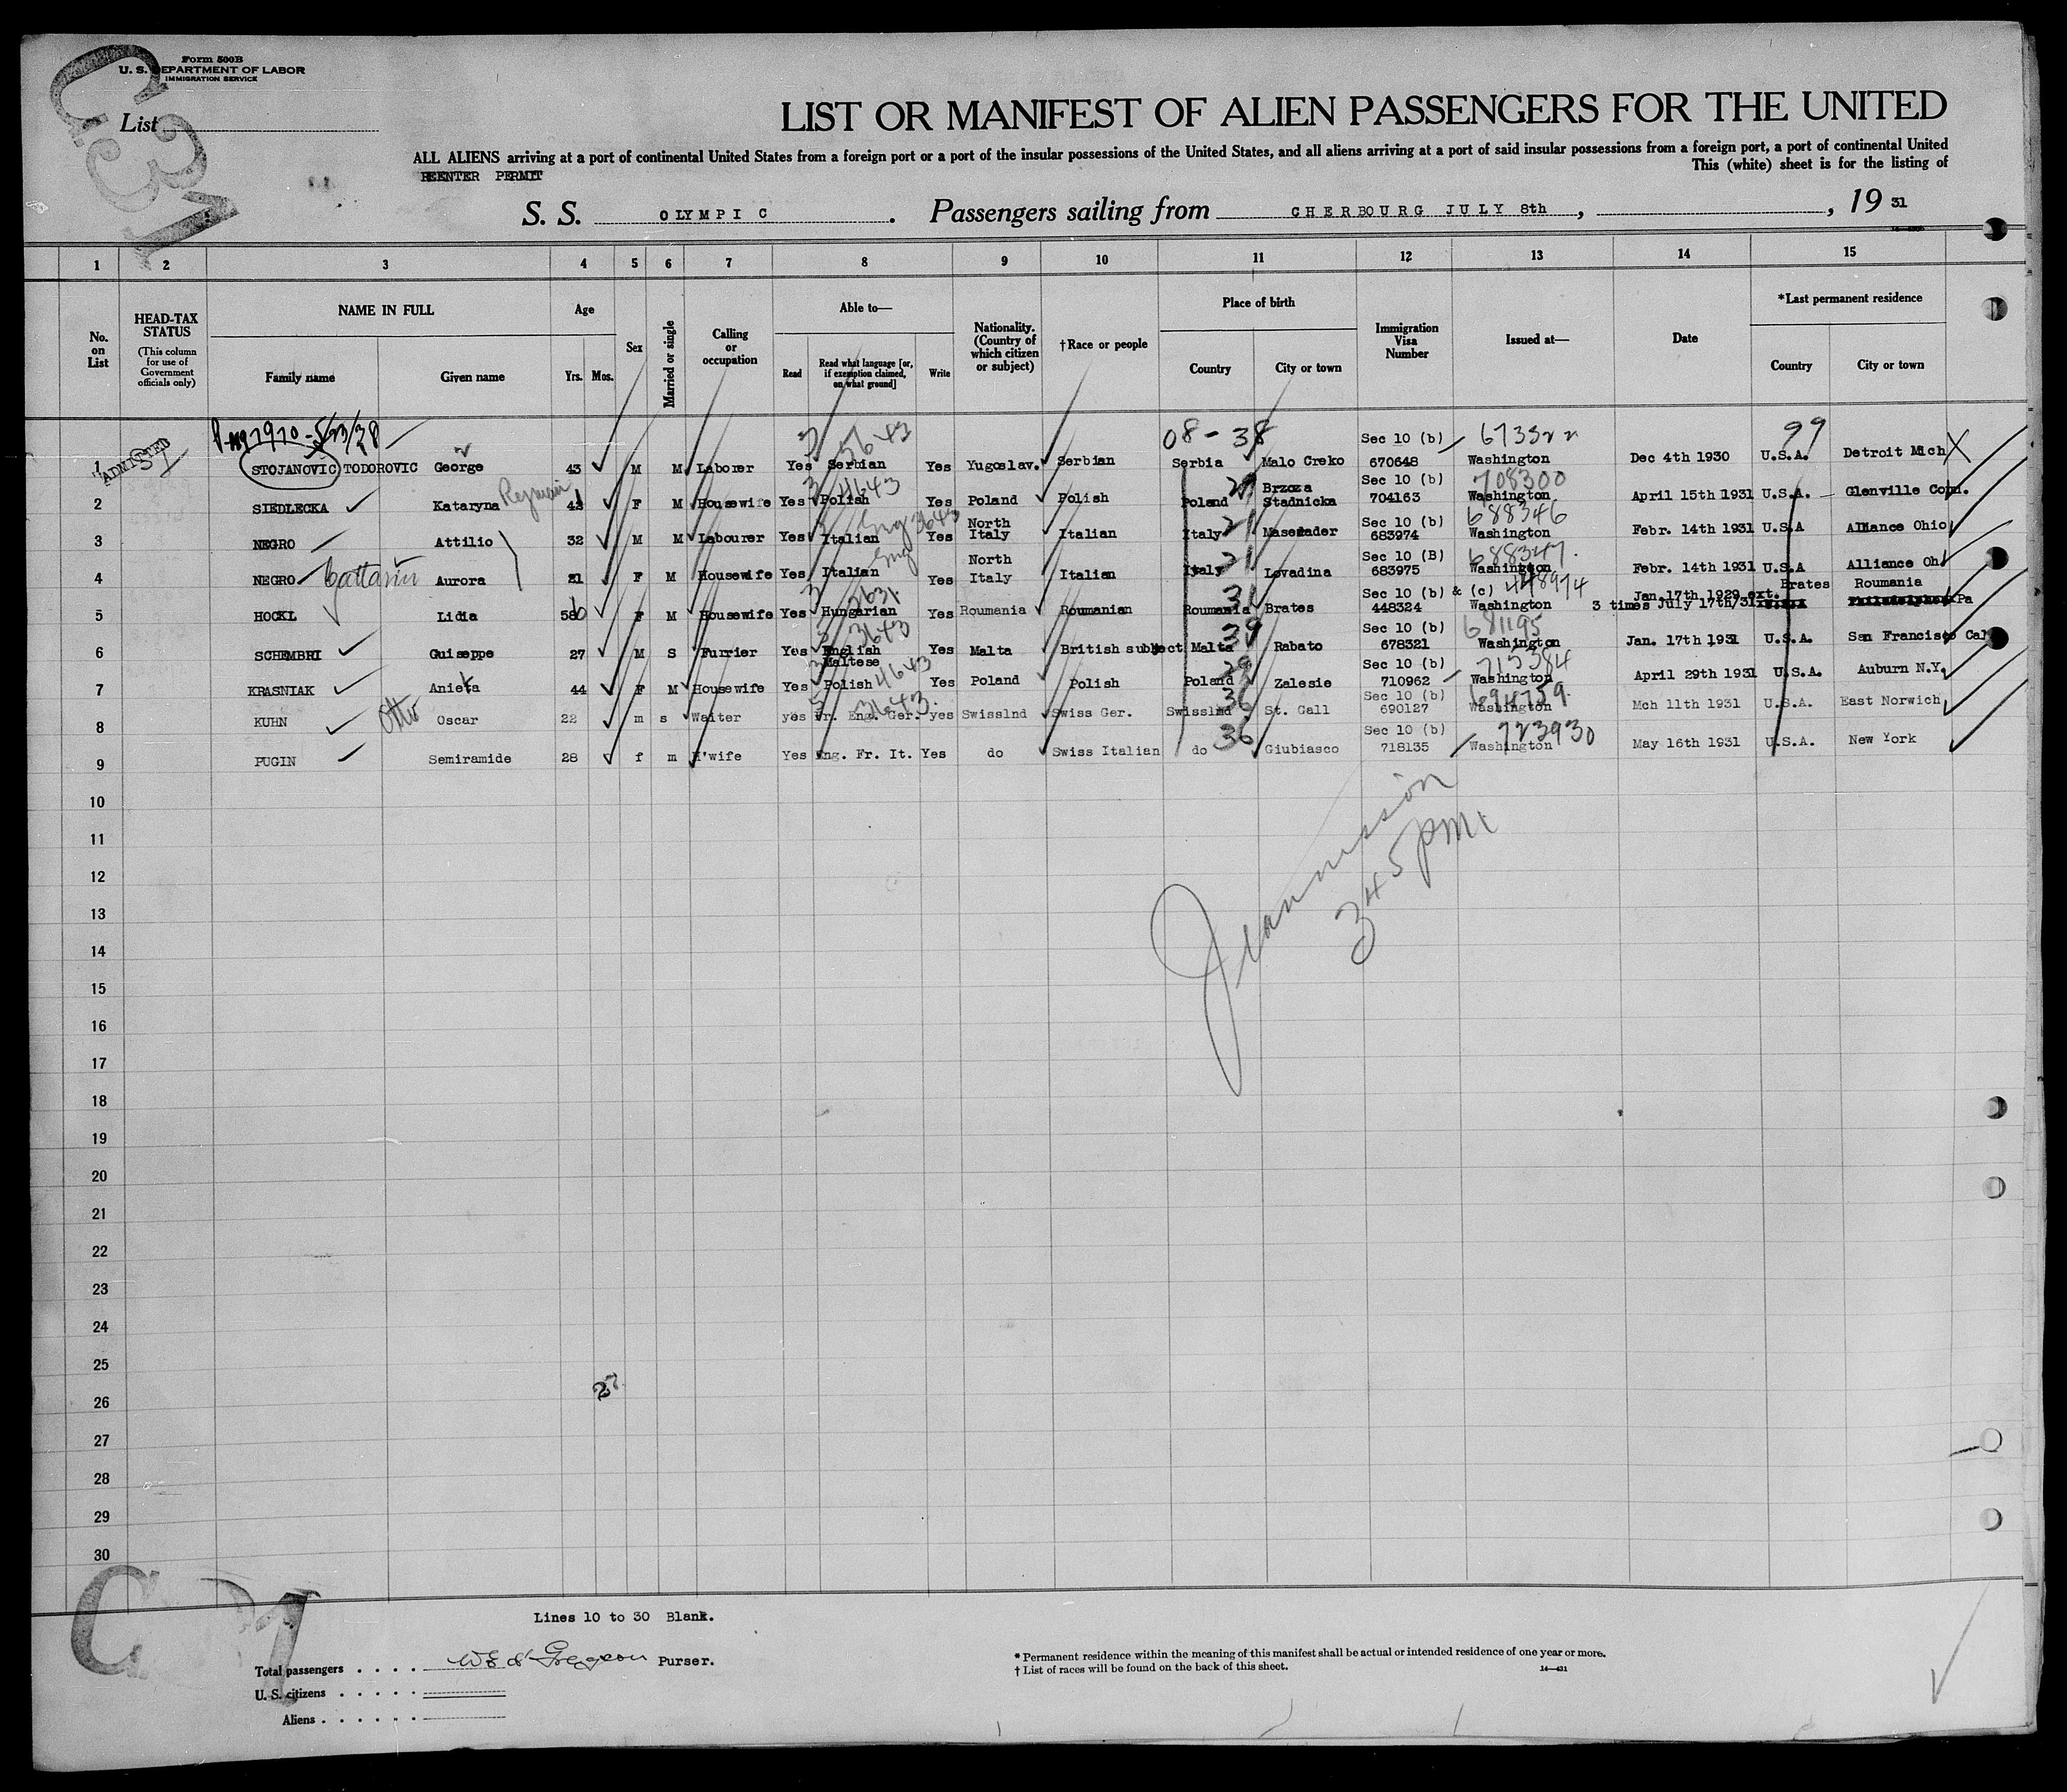 Form 500B
U. S. DEPARTMENT OF LABOR
IMMIGRATION SERVICE
List
LIST OR MANIFEST OF ALIEN PASSENGERS FOR THE UNITED
ALL ALIENS arriving at a port of continental United States from a foreign port or a port of the insular possessions of the United States, and all aliens arriving at a port of said insular possessions from a foreign port, a port of continental United
REENTER PERMIT
This (white) sheet is for the listing of
S. S. OLYMPIC. Passengers sailing from CHERBOURG JULY 8th, , 19 31
1 2 3 4 5 6 7 8 9 10 11 12 13 14 15
No. on List
HEAD-TAX STATUS (This column for use of Government officials only)
NAME IN FULL
Family name
Given name
Age
Yrs. Mos.
Sex
Married or single
Calling or occupation
Able to—
Read
Read what language [or, if exemption claimed, on what ground]
Write
Nationality. (Country of which citizen or subject)
†Race or people
Place of birth
Country
City or town
Immigration Visa Number
Issued at—
Date
*Last permanent residence
Country
City or town
08-38 99
ADMITTED
1 STOJANOVIC TODOROVIC George 43 M M Laborer Yes Serbian Yes Yugoslav. Serbian Serbia Malo Creko Sec 10 (b) 670648 Washington Dec 4th 1930 U.S.A. Detroit Mich
4643 708300
2 SIEDLECKA Kataryna F M Housewife Yes Polish Yes Poland Polish Poland Brzoza Stadnicka Sec 10 (b) 704163 Washington April 15th 1931 U.S.A. Glenville Conn.
Eng 3643 688346
3 NEGRO Attilio 32 M M Labourer Yes Italian Yes North Italy Italian Italy Sec 10 (b) 683974 Washington Febr. 14th 1931 U.S.A Alliance Ohio
Eng 688347.
4 NEGRO Cattarin Aurora 21 F M Housewife Yes Italian Yes North Italy Italian Italy Lovadina Sec 10 (B) 683975 Washington Febr. 14th 1931 U.S.A Alliance Oh
448974
5 HOCKL Lidia F M Housewife Yes Hungarian Yes Roumania Roumanian Roumania Brates Sec 10 (b) & (c) 448324 Washington Jan 17th 1929 ext. 3 times July 17th/31 Brates Roumania Pa
3643 681195
6 SCHEMBRI Guiseppe 27 M S Furrier Yes English Maltese Yes Malta British subject Malta Rabato Sec 10 (b) 678321 Washington Jan. 17th 1931 U.S.A. San Francisco Cal
4643 715384
7 KRASNIAK Anieta 44 F M Housewife Yes Polish Yes Poland Polish Poland Zalesie Sec 10 (b) 710962 Washington April 29th 1931 U.S.A. Auburn N.Y.
3643. 694759.
8 KUHN Otto Oscar 22 m s Waiter yes Fr. Eng. Ger. yes Swisslnd Swiss Ger. Swisslnd 36 St. Gall Sec 10 (b) 690127 Washington Mch 11th 1931 U.S.A. East Norwich,
723930
9 PUGIN Semiramide 28 f m H'wife Yes Eng. Fr. It. Yes do Swiss Italian do 36 Giubiasco Sec 10 (b) 718135 Washington May 16th 1931 U.S.A. New York
10
11
12
345 pm
13
14
15
16
17
18
19
20
21
22
23
24
25
27
26
27
28
29
30
Lines 10 to 30 Blank.
Total passengers . . . . Purser.
U. S. citizens . . . . .
Aliens . . . . . .
* Permanent residence within the meaning of this manifest shall be actual or intended residence of one year or more.
† List of races will be found on the back of this sheet.
14—431